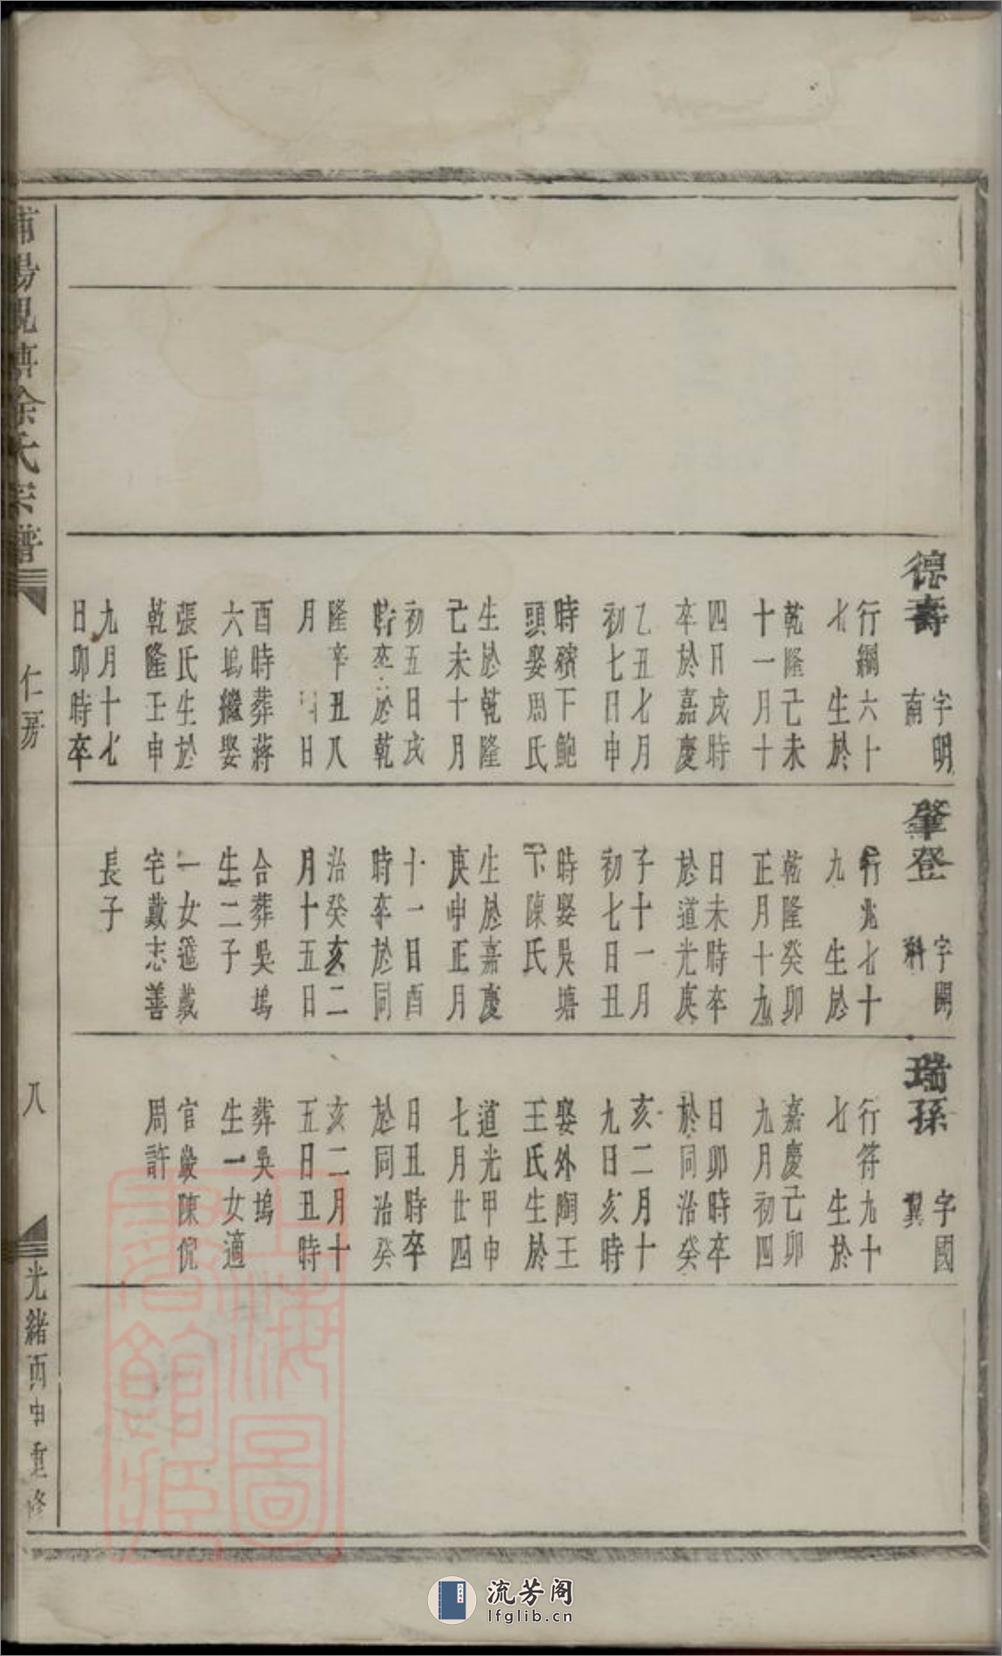 德壽
字明
南
行綱六十
七 生於
乾隆己未
十一月十
四日戌時
卒於嘉慶
乙丑七月
初七日申
時殯下鮑
頭娶周氏
生於乾隆
己未十月
初五日戌
時卒於乾
隆辛丑八
月 日
酉時葬蔣
六塢繼娶
張氏生於
乾隆壬申
九月十七
日卯時卒
肇登
字開
科
行兆七十
九 生於
乾隆癸卯
正月十九
日未時卒
於道光庚
子十一月
初七日丑
時娶吳塘
下陳氏
生於嘉慶
庚申正月
十一日酉
時卒於同
治癸亥二
月十五日
合葬吳塢
生二子
一女適戴
宅戴志善
長子
瑞孫
字國
翼
行符九十
七 生於
嘉慶己卯
九月初四
日卯時卒
於同治癸
亥二月十
九日亥時
娶外陶王
王氏生於
道光甲申
七月廿四
日丑時卒
於同治癸
亥二月十
五日丑時
葬吳塢
生一女適
官巖陳倪
周許
余氏宗譜
仁房
八
光緒丙申重修
上海圖書館藏
流芳阁
lfglib.cn